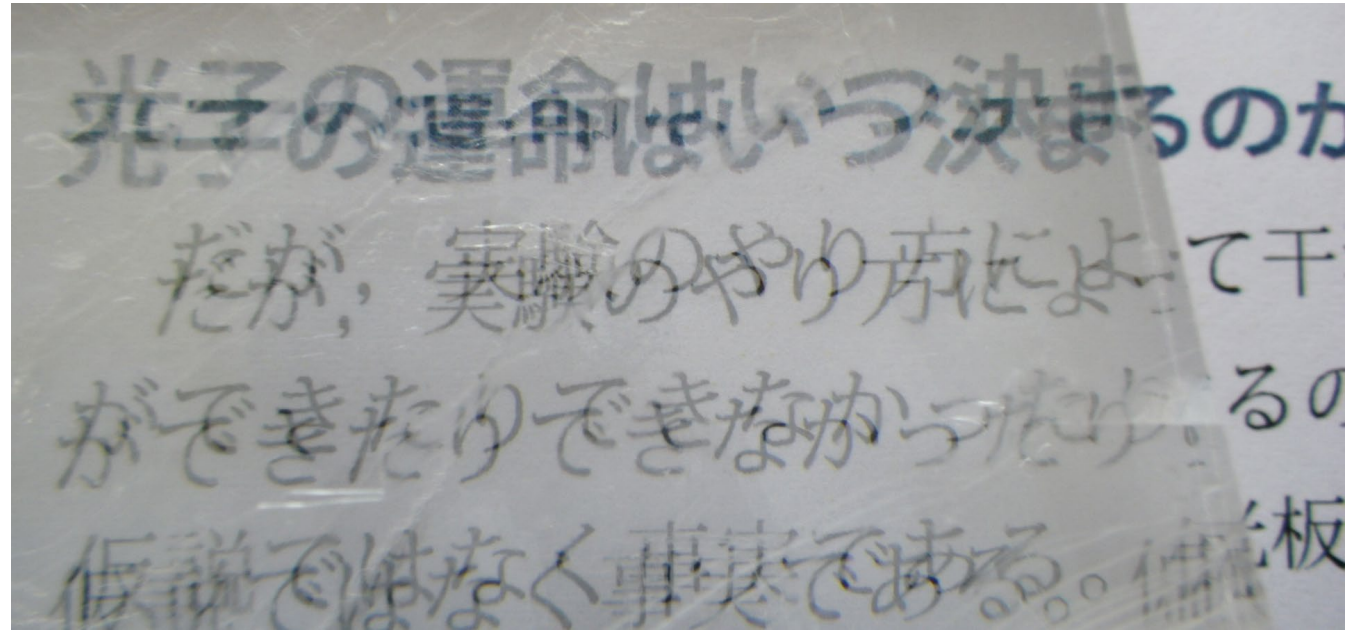 光子の運命はいつ決まるのか
だが，実験のやり方によって干
ができたりできなかったり するの
仮説ではなく事実である。偏光板